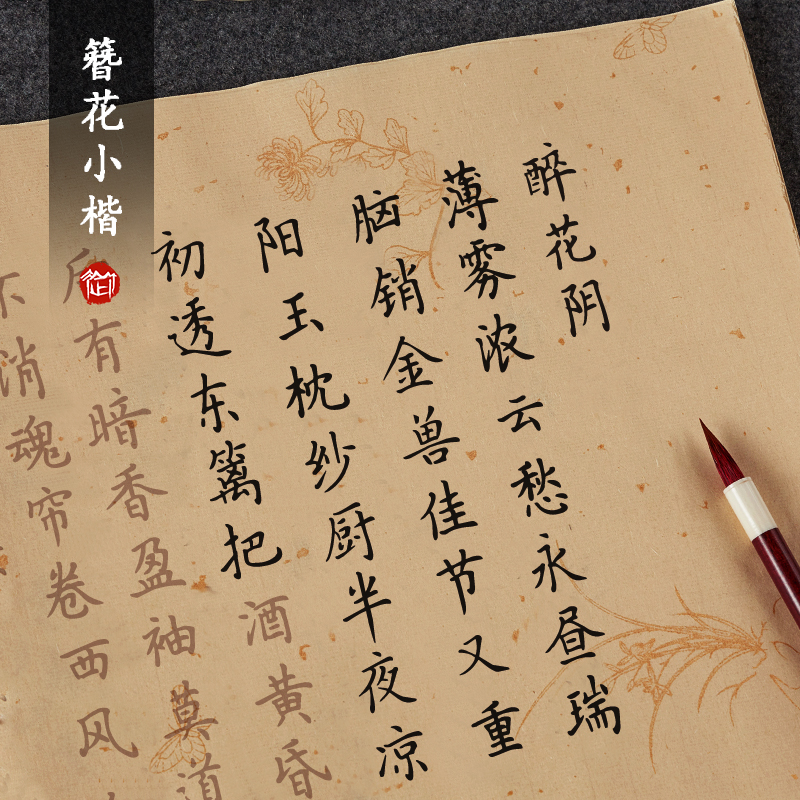 簪花小楷
醉花阴
薄雾浓云愁永昼瑞
脑销金兽佳节又重
阳玉枕纱厨半夜凉
初透东篱把酒黄昏
后有暗香盈袖莫道
不消魂帘卷西风